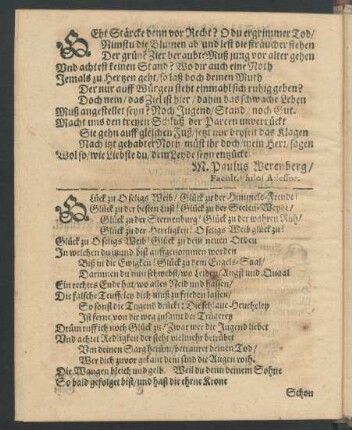 GEht Stärcke denn vor Recht? O du ergrimmter Tod/
Nimstu die Blumen ab und lest die sträucher stehen
Der grünē Zier beraubt? Muß jung vor alter gehen
Und achtest keinen Stand? Wo dir auch eine Noth
Jemals zu Hertzen geht/ so laß doch deinen Muth
Der nur auff Würgen steht einmahl sich ruhig geben?
Doch nein/ das Ziel ist hier/ dahin das schwache Leben
Muß angestellet seyn? Noch Jugend/ Stand/ noch Gut.
Macht uns den Schluß der Parcen unverrückt
Sie gehn auff gleichen Fuß/ setzt nur beyseit das Klagen
Nach itzt gehabter Noth/ müst ihr doch/ mein Herr/ sagen
Wol so/ wie Liebste du dem Leyde seyn entzückt
M. Paulus Werenberg/
Facult. Philos. Adsessor.
GLück zu O seligs Weib/ Glück zu der Himmels-Freude/
Glück zu der besten Lust/ Glück zu der Seelen-Weyde/
Glück zu der Sternenburg/ Glück zu der wahren Ruh/
Glück zu der Herrligkeit/ O seligs Weib glück zu!
Glück zu O seligs Weib/ Glück zu dem neuen Orden
In welchen du itzund bist auffgenommen worden
Biß in die Ewigkeit/ Glück zu dem Engels-Saal/
Darinnen du nun schwebst/ wo Leiden/ Angst und Quaal
Ein rechtes Ende hat/ wo alles Neid und hassen/
Die falsche Teuffeley dich muß zu frieden lassen/
So sonst die Tugend drückt: Die schlaue Heucheley
Ist fern/ von dir weg zusamt der Triegerey
Drüm ruff ich noch Glück zu/ Zwar wer die Jugend liebet
Und achtet Redligkeit der steht vielmehr betrübet
Um deinen Sarg herüm/ betrauret deinen Tod/
Wer dich zuvor gekant dem sind die Augen roth.
Die Wangen bleich und gelb. Weil du denn deinem Sohne
So bald gefolget bist/ und hast die ehrne Krone
Schon